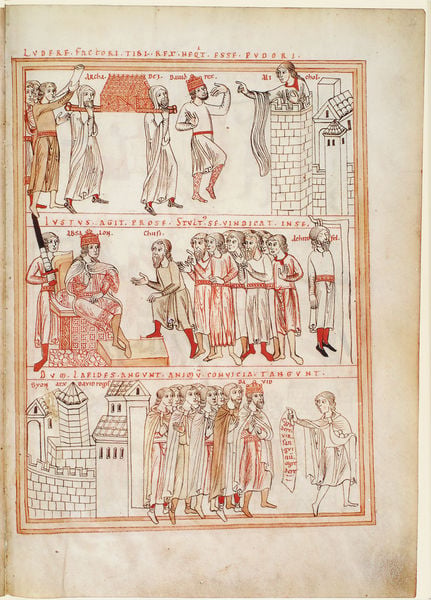 LUDERE. FACTORI. TIBI. REX. NEQT. ESSE. PUDORI.
Archa Dei. David rex. Mi chol.
IUSTUS. AGIT. PROSE. STULTꝰ. SE. VINDICAT. INSE.
ABSA LON. Chusi. Achitofel.
DUM. LAPIDES. ANGUNT. ANIMŪ. CONVICIA. TANGUNT.
Syon ARX DAVID regis DA VID
dere
vir
san
gui
nū
egre
dere